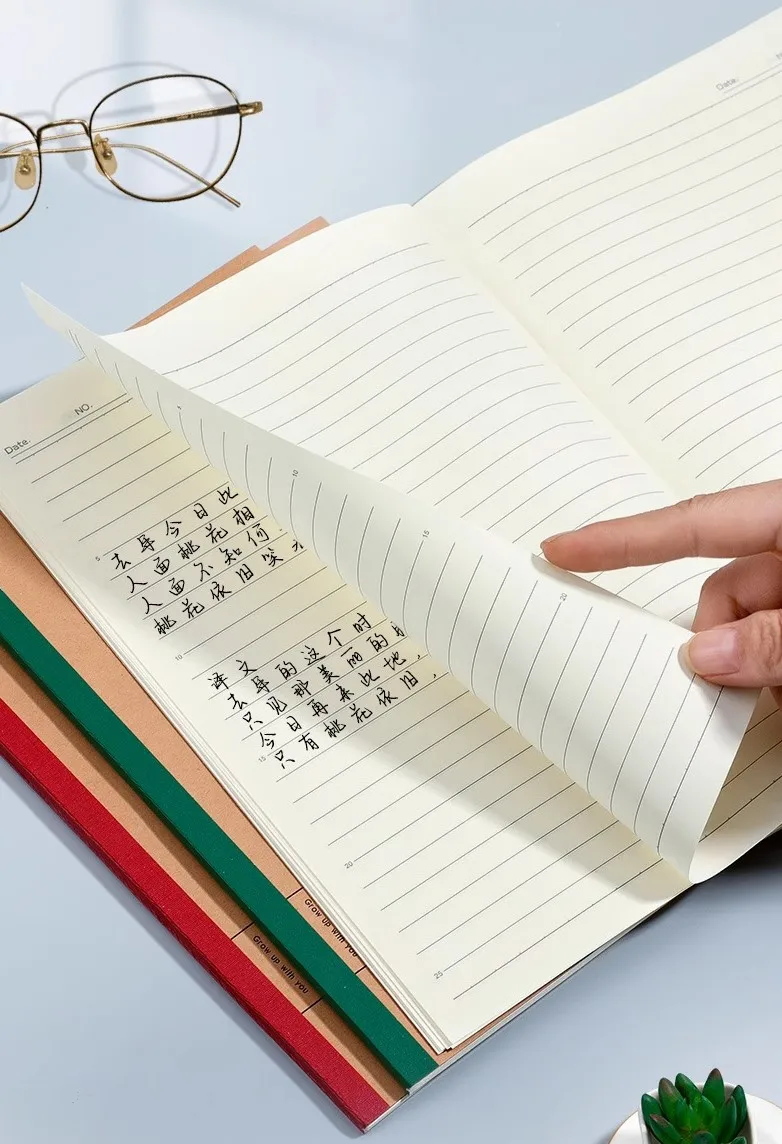 Date.
NO.
Date.
去年今日此
人面桃花相
人面不知何
桃花依旧笑
译文
去年的这个时
只见那美丽的
今日再来此地,
只有桃花依旧,
5
10
15
20
25
5
10
15
20
Grow up with you
Grow up with you